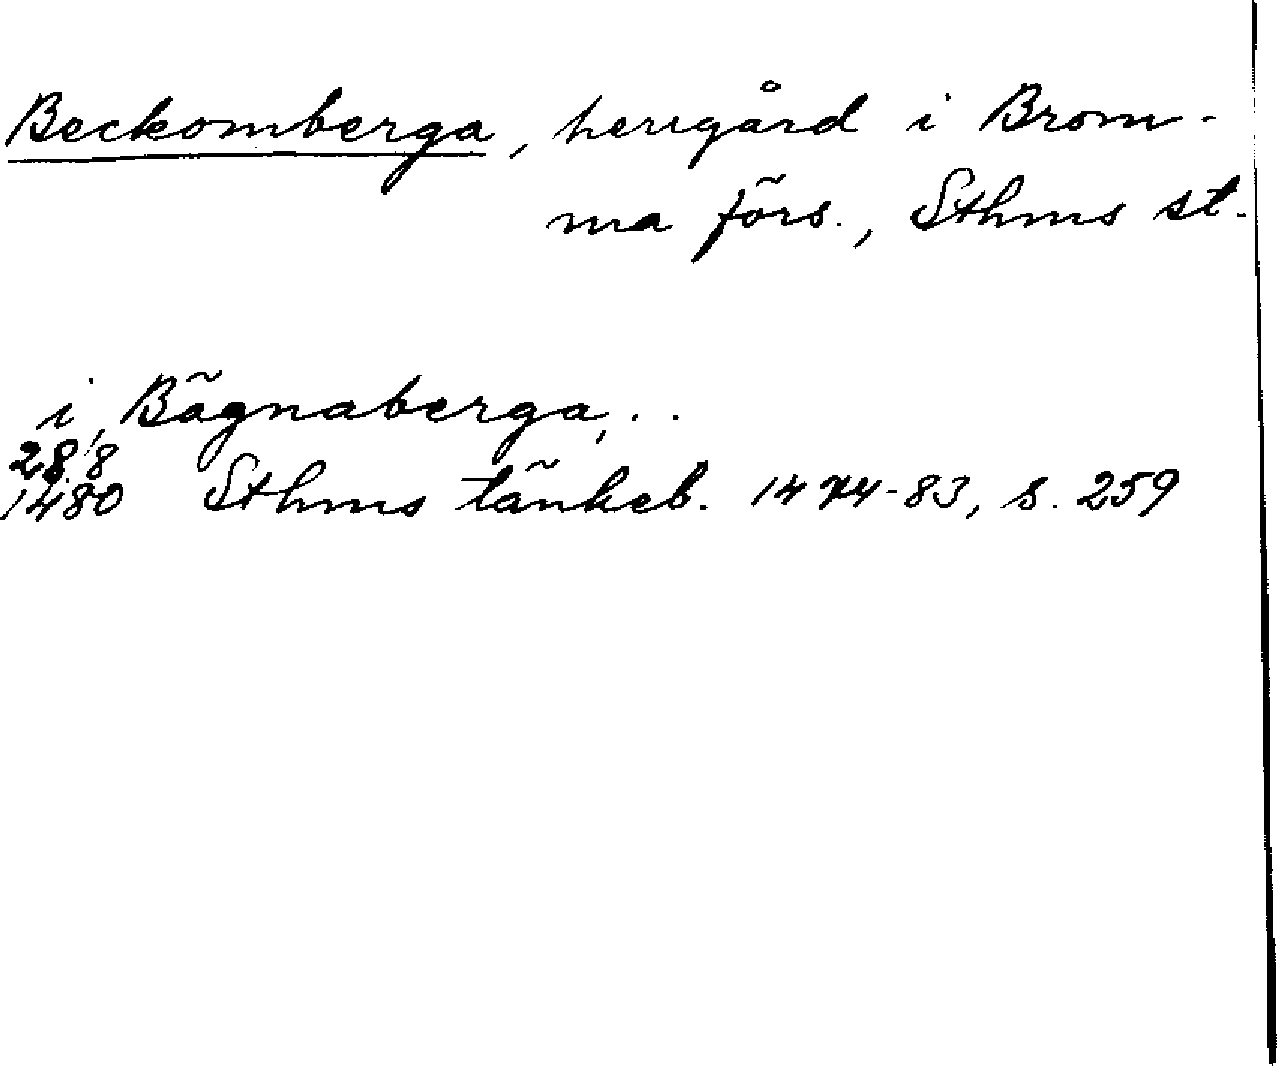 Beckomberga, herrgård i Brom-
ma förs., Sthms st.
i Bägnaberga, ..
28/8
1480 Sthms tänkeb. 1474-83, s. 259